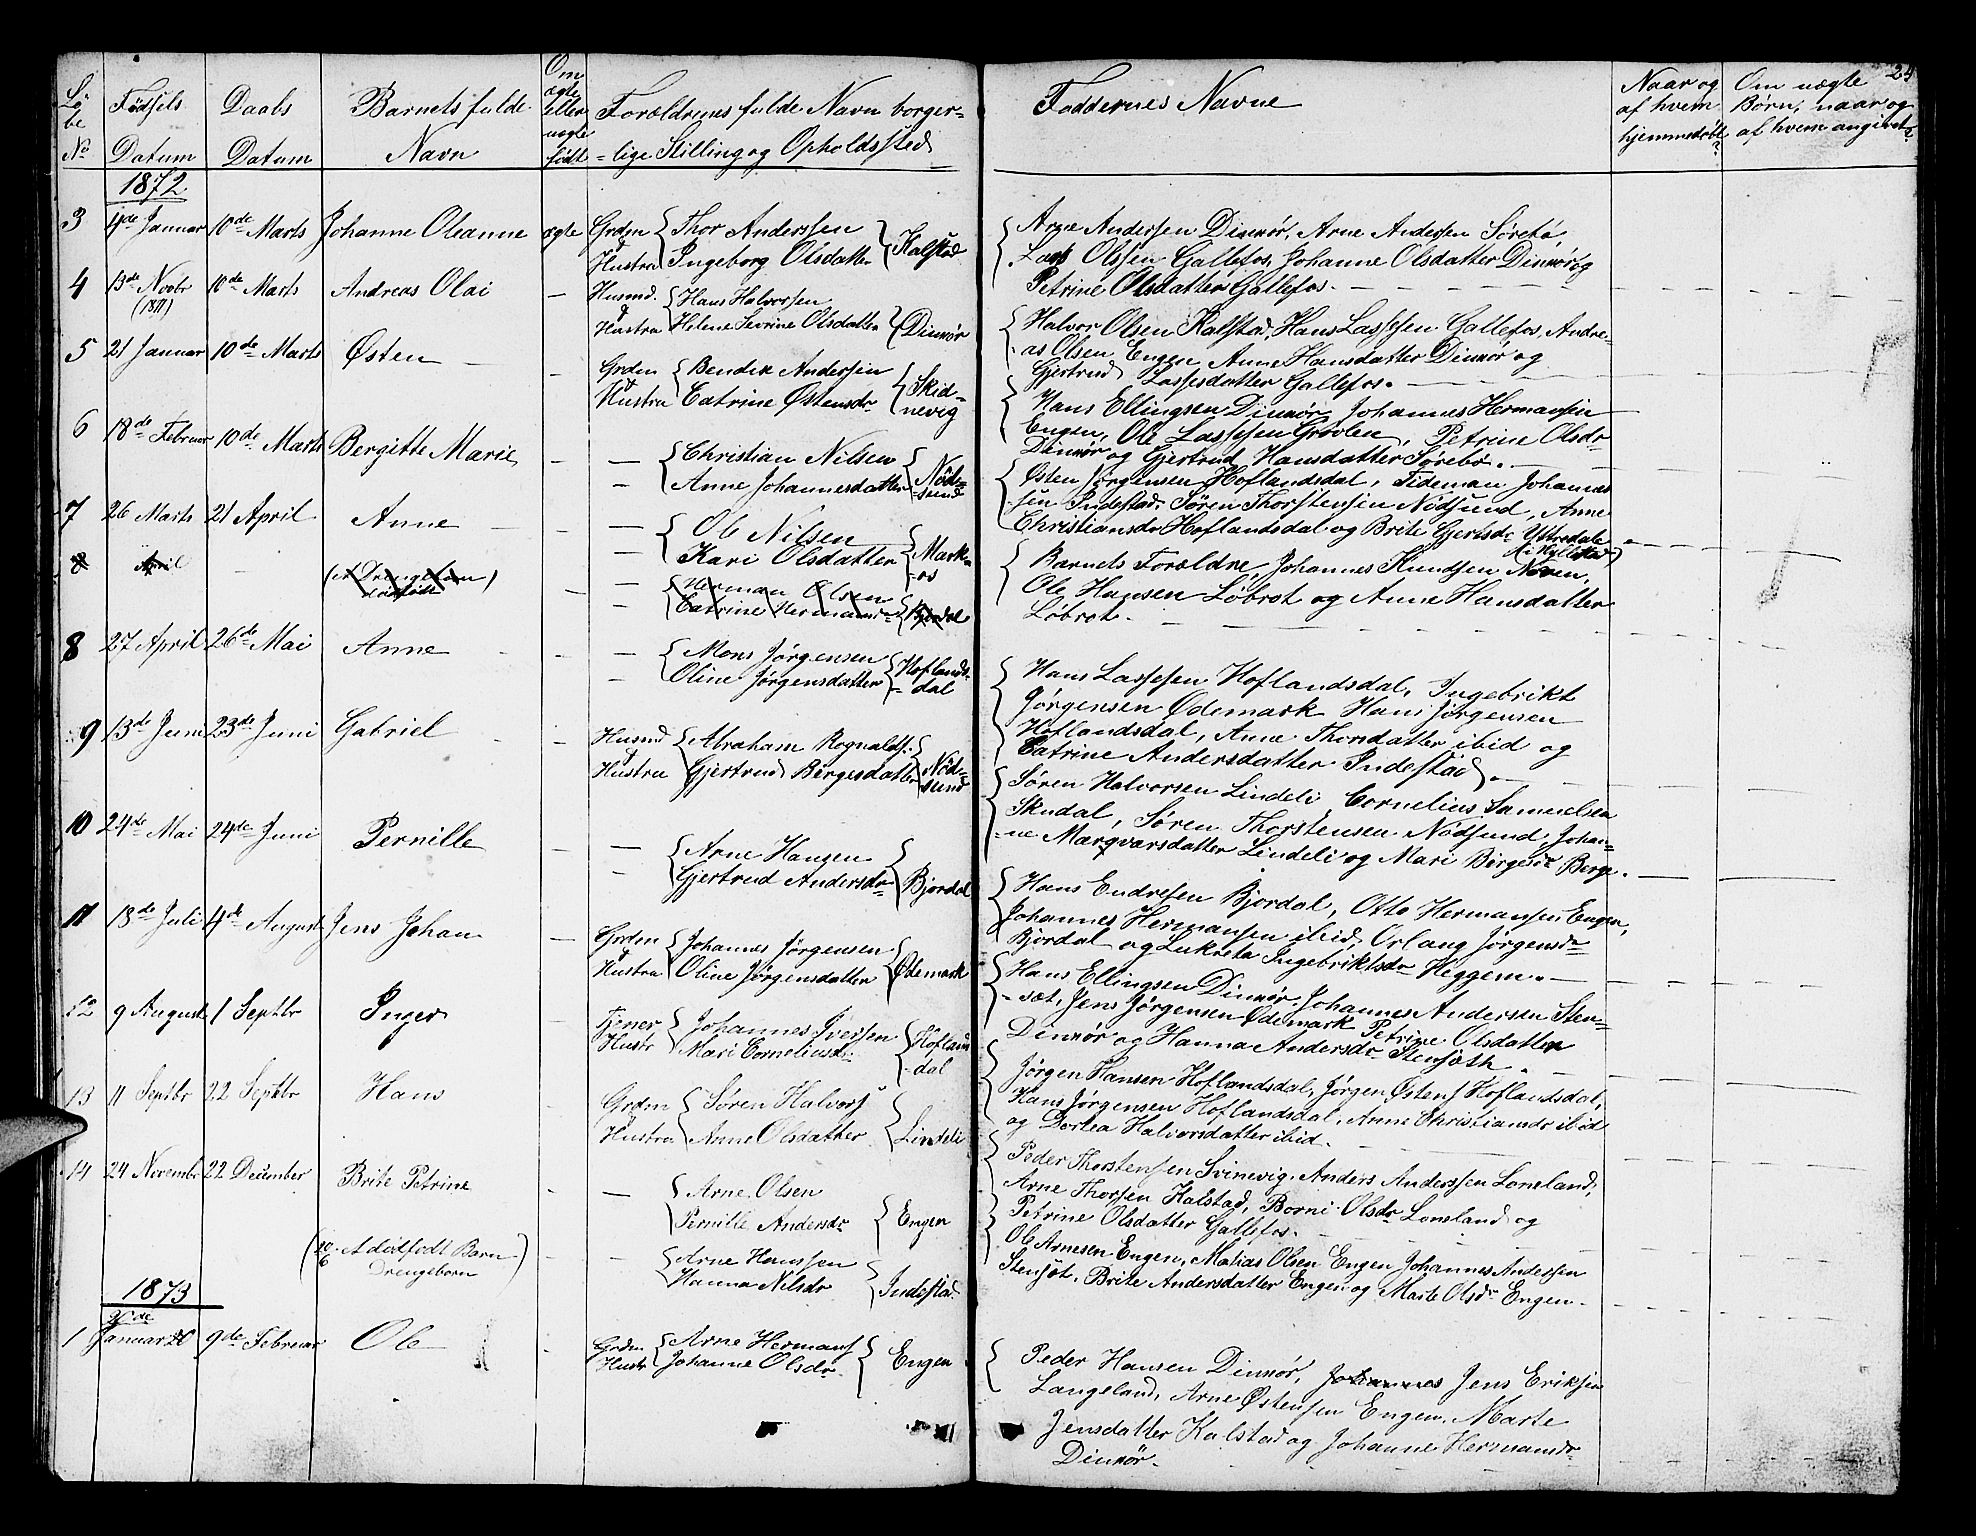 24
Lö
be
No
Fødsels
Datum
Daabs
Datum
Barnets fulde
Navn
Om
ægte
eller
uægte
født
Forældrenes fulde Navn borger-
=lige Stilling og Opholdssted
Faddernes Navne
Naar og
af hvem
hjemmedøbt?
Om uægte
Børn, naar og
af hvem angivet?
1872
3 4de Januar 10de Marts Johanne Oleanne ægte Grdm Thor Anderssen
Hustru Ingeborg Olsdatter Kalstad
Arne Andersen Dinnør, Arne Andersen Sørebø
Lars Olsen Gallefos, Johanne Olsdatter Dinnør og
Petrine Olsdatter Gallefos.
4 13de Novbr 10de Marts Andreas Olai — Husmd. Hans Halvorsen
(1871)
Hustru Helene Sevrine Olsdatter Dinnør
Halvor Olsen Kalstad, Hans Lassesen Gallefos, Andre-
as Olsen Engen, Anne Hansdatter Dinnør og
Gjertrud Lassesdatter Gallefos.
5 21 Januar 10de Marts Østen — Grdm Bendix Andersen
Hustru Catrine Østensdr Skid-
nevig
Hans Ellingsen Dinnør, Johannes Hermansen
Engen, Ole Lassesen Grøvlen, Petrine Olsdr
Dinnør og Gjertrud Hansdatter Sørebø.
6 18de Februar 10de Marts Bergitte Marie — Christian Nilsen
Anne Johannesdatter Nöd-
sund
Østen Jørgensen Hoflandsdal, Tideman Johannes
sen Indestad, Sören Thorstensen Nödsund, Anne
Christiansdr Hoflandsdal og Brite Gjertsdr Yttredale
(i Hyllestad)
7 26 Marts 21 April Anne — Ole Nilsen
Kari Olsdatter Mark-
os
Barnets Forældre, Johannes Knudsen Noven,
Ole Hansen Löbrot og Anne Hansdatter
Löbrot.
8 April (et Drengebarn)
dødfødt
Herman Olsen
Catrine Hermansdr Bjordal
8 27 April 26de Mai Anne — Mons Jørgensen
Oline Jørgensdatter Hoflands-
dal
Hans Lassesen Hoflandsdal, Ingebrikt
Jørgensen Ødemark Hans Jørgensen
Hoflandsdal, Anne Thorsdatter ibid og
Catrine Andersdatter Indestad.
9 13de Juni 23de Juni Gabriel — Husmd Abraham Rognalds.
Hustru Gjertrud Børgesdatter Nöd-
sund
Søren Halvorsen Lindeli, Cornelius Samuelsen
Skudal, Søren Thorstensen Nödsund, Johan-
ne Marqvarsdatter Lindeli og Mari Börgesdr Berge.
10 24de Mai 24de Juni Pernille — Arne Hansen
Gjertrud Andersdr Bjordal
Hans Endresen Bjordal, Otto Hermansen Engen,
Johannes Hermansen ibid, Orlaug Jørgensdr
Bjordal og Lukreta Ingebriktsdr Heggem.
11 18de Juli 4de August Jens Johan — Grdm Johannes Jørgensen
Hustru Oline Jørgensdatter Ødemark
Hans Ellingsen Dinnør, Johannes Andersen Sten-
sæt, Jens Jørgensen Ødemark Petrine Olsdatter
Dinnør og Hanna Andersdr Stensøth.
12 9 August 1 Septbr Inger Tjener Johannes Iversen
Hustr Mari Corneliusdr Hoflan
dal
Jørgen Hansen Hoflandsdal, Jørgen Østens Hoflandsdal,
Hans Jørgensen Hoflandsdal, Anne Christiansdr ibid
og Dortea Halvorsdatter ibid.
13 11 Septbr 22 Septbr Hans Grdm Søren Halvors
Hustru Anne Olsdatter Lindeli
Peder Thorstensen Svinevig, Anders Anderssen Loneland,
Arne Thorsen Halstad, Borni Olsdr Loneland og
Petrine Olsdatter Gallefos.
14 24 Novembr 22 December Brite Petrine — Arne Olsen
Pernille Andersdr Engen
Ole Arnesen Engen, Matias Olsen Engen Johannes Andersen
Stensøt, Brite Andersdatter Engen og Marte Olsdr Engen.
(20/6 Et dödfödt Barn
Drengebarn)
Arne Hanssen
Hanna Nilsdr Indestad
1873
1 Januar 20 9de Februar Ole — Grdm Arne Hermans
Hustr Johanne Olsdr Engen
Peder Hansen Dinnør, Johannes Jens Eriksen
Langeland, Arne Østensen Engen, Marte
Jensdatter Kalstad og Johanne Hermansdr
Dinnør.